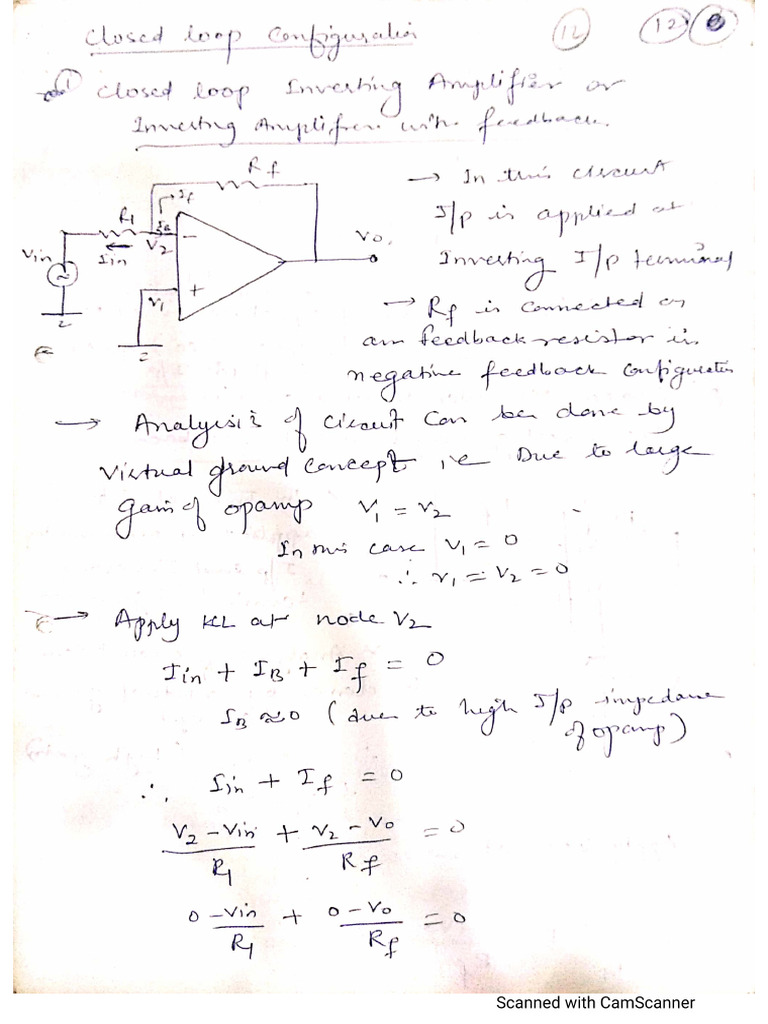 Closed loop Configuration
12
12
① Closed loop Inverting Amplifier or
Inverting Amplifier with feedback.
Rf
If
R1
IB
V2
Iin
Vin
V1
Vo
→ In this circuit
I/p is applied at
Inverting I/p terminal
→ Rf is connected as
an feedback resistor in
negative feedback configuration
→ Analysis of circuit can be done by
virtual ground concept i.e Due to large
gain of opamp V1 = V2
In this case V1 = 0
∴ V1 = V2 = 0
→ Apply KCL at node V2
Iin + IB + If = 0
IB ≈ 0 (due to high I/p impedance
of opamp)
∴ Iin + If = 0
V2 - Vin / R1 + V2 - Vo / Rf = 0
0 - Vin / R1 + 0 - Vo / Rf = 0
Scanned with CamScanner